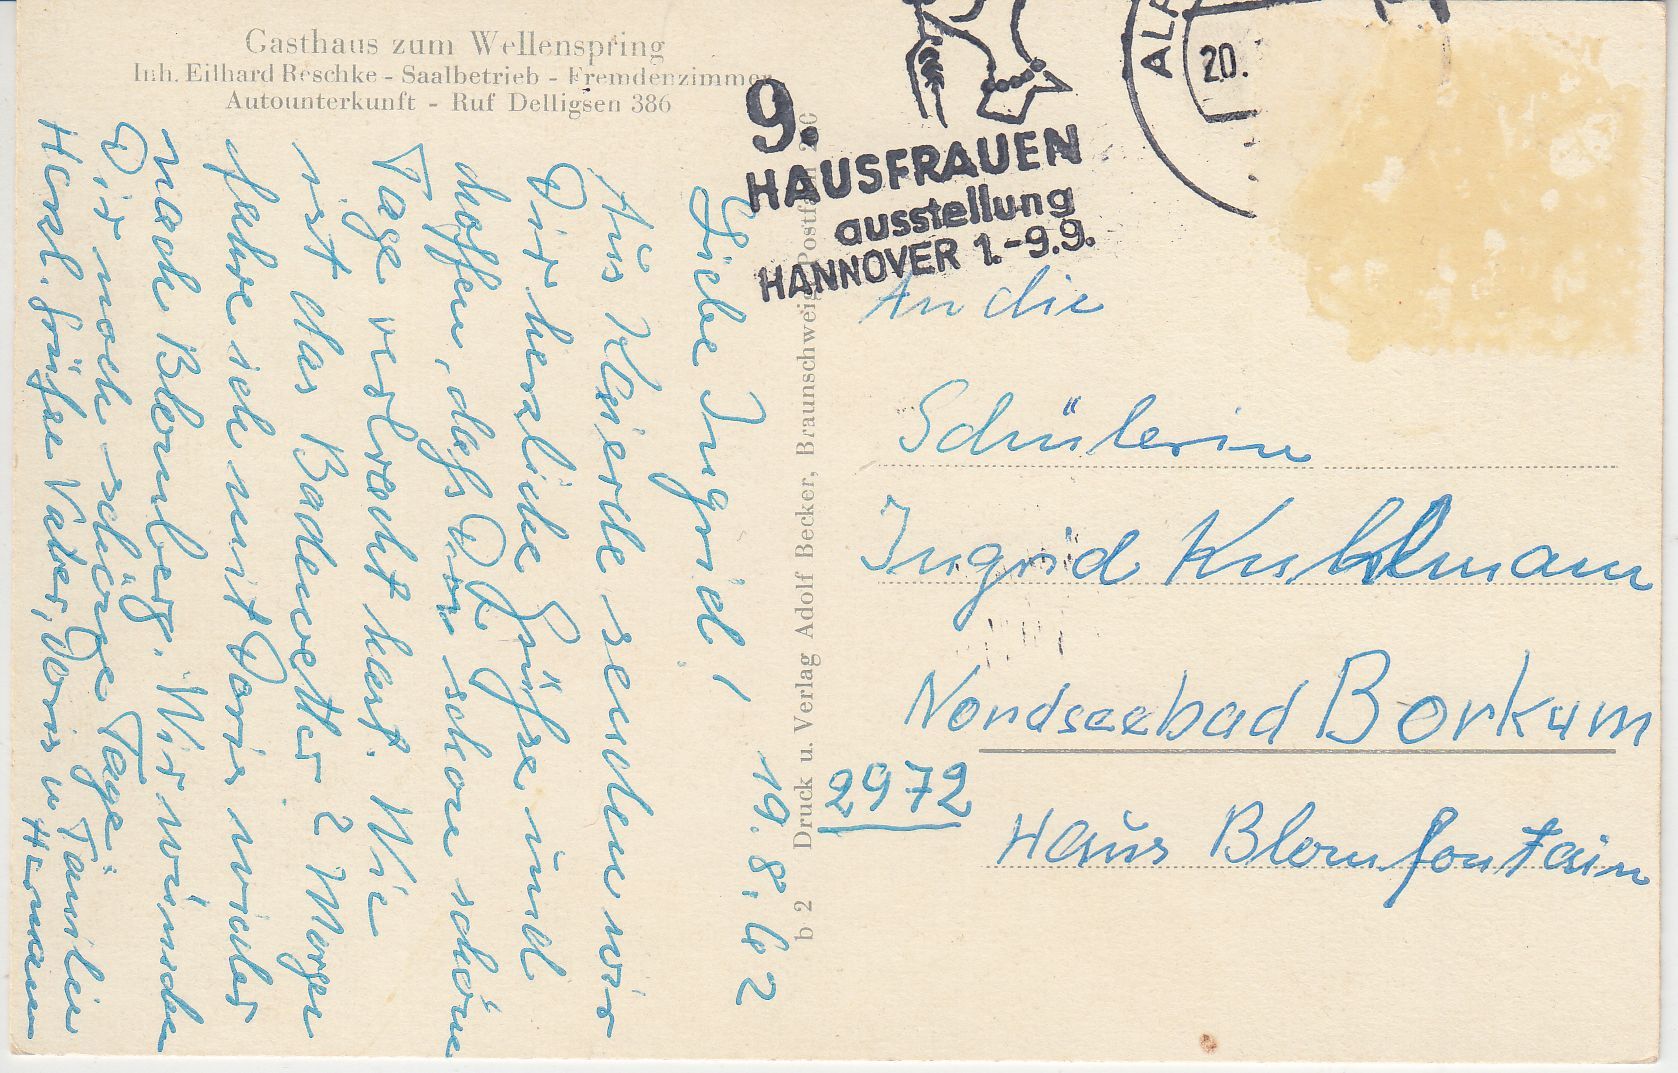 Gasthaus zum Wellenspring
Inh. Eilhard Reschke - Saalbetrieb - Fremdenzimmer
Autounterkunft - Ruf Delligsen 386
9.
HAUSFRAUEN
ausstellung
HANNOVER 1.-9.9.
ALF
20.
19.8.62
Liebe Ingrid!
Aus Kaierde senden wir
Dir herzliche Grüße und
hoffen, daß Du schon schöne
Tage verbracht hast. Wie
ist das Badewetter? Morgen
fahre ich mit Doris wieder
nach Blomberg. Wir wünschen
Dir noch schöne Tage.
Herzl. Grüße Vater, Doris u. Familie
Hermann
b 2 Druck u. Verlag Adolf Becker, Braunschweig, Postfa 20
An die
Schülerin
Ingrid Kuhlmann
2972
Nordseebad Borkum
Haus Blomfontain